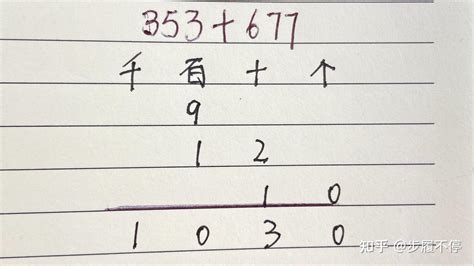 353+677
千 百 十 个
9
1 2
1 0
1 0 3 0
知乎 @步履不停